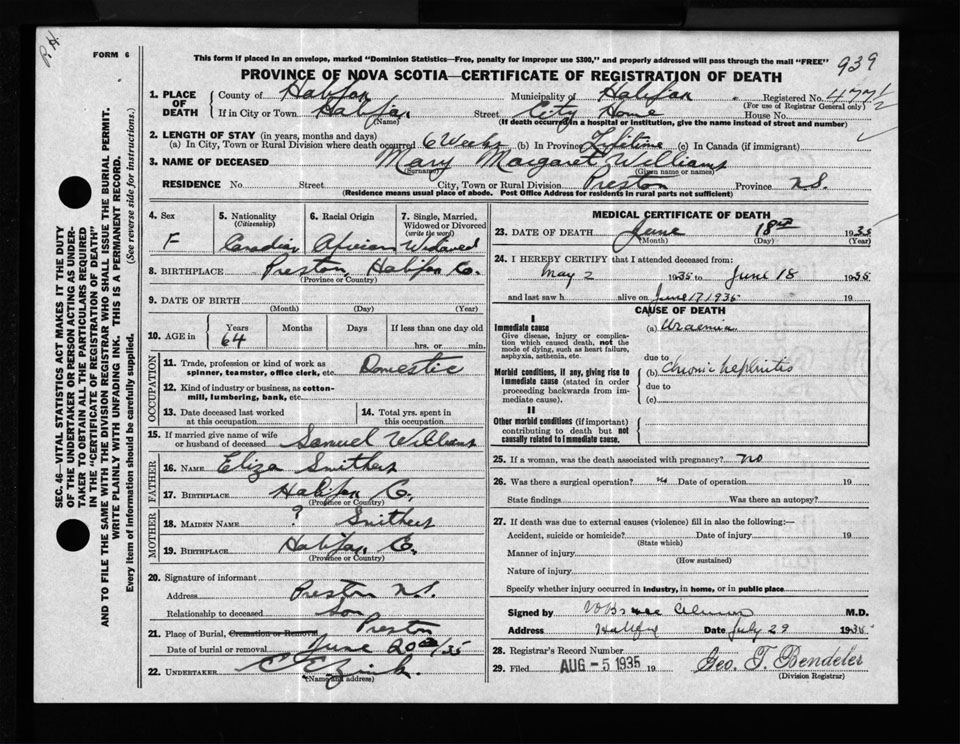 P. H.
FORM 6
This form if placed in an envelope, marked "Dominion Statistics—Free, penalty for improper use $300," and properly addressed will pass through the mail "FREE"
939
PROVINCE OF NOVA SCOTIA—CERTIFICATE OF REGISTRATION OF DEATH
1. PLACE OF DEATH
County of Halifax Municipality of Halifax Registered No. 477 1/2
(For use of Registrar General only)
If in City or Town Halifax Street City Home House No.
(Name) (If death occurred in a hospital or institution, give the name instead of street and number)
2. LENGTH OF STAY (in years, months and days)
(a) In City, Town or Rural Division where death occurred 6 Weeks (b) In Province Lifetime (c) In Canada (if immigrant)
3. NAME OF DECEASED Mary Margaret Williams
(Surname) (Given name or names)
RESIDENCE No. Street City, Town or Rural Division Preston Province N.S.
(Residence means usual place of abode. Post Office Address for residents in rural parts not sufficient)
4. Sex F
5. Nationality (Citizenship) Canadian
6. Racial Origin African
7. Single, Married, Widowed or Divorced (write the word) Widowed
8. BIRTHPLACE Preston, Halifax Co.
(Province or Country)
9. DATE OF BIRTH
(Month) (Day) (Year)
10. AGE in Years 64 Months Days If less than one day old
hrs. or min.
OCCUPATION
11. Trade, profession or kind of work as spinner, teamster, office clerk, etc. Domestic
12. Kind of industry or business, as cotton-mill, lumbering, bank, etc.
13. Date deceased last worked at this occupation
14. Total yrs. spent in this occupation
15. If married give name of wife or husband of deceased Samuel Williams
FATHER
16. NAME Eliza Smithers
17. BIRTHPLACE Halifax Co.
(Province or Country)
MOTHER
18. MAIDEN NAME ? Smithers
19. BIRTHPLACE Halifax Co.
(Province or Country)
20. Signature of informant
Address Preston N.S.
Relationship to deceased Son
21. Place of Burial, Cremation or Removal Preston
Date of burial or removal June 20 /35
22. UNDERTAKER
(Name and address)
MEDICAL CERTIFICATE OF DEATH
23. DATE OF DEATH June 18th 1935
(Month) (Day) (Year)
24. I HEREBY CERTIFY that I attended deceased from:
May 2 1935 to June 18 1935
and last saw h alive on June 17 1935 19
CAUSE OF DEATH
I
Immediate cause
Give disease, injury or complication which caused death, not the mode of dying, such as heart failure, asphyxia, asthenia, etc.
(a) Uraemia
due to
Morbid conditions, if any, giving rise to immediate cause (stated in order proceeding backwards from immediate cause).
(b) Chronic nephritis
due to
(c)
II
Other morbid conditions (if important) contributing to death but not causally related to immediate cause.
25. If a woman, was the death associated with pregnancy? no
26. Was there a surgical operation? no Date of operation 19
State findings Was there an autopsy?
27. If death was due to external causes (violence) fill in also the following:—
Accident, suicide or homicide? Date of injury 19
(State which)
Manner of injury
(How sustained)
Nature of injury
Specify whether injury occurred in industry, in home, or in public place
Signed by M.D.
Address Halifax Date July 29 1935
28. Registrar's Record Number
29. Filed AUG - 5 1935 19 Geo. T. Bendeler
(Division Registrar)
SEC. 46—VITAL STATISTICS ACT MAKES IT THE DUTY
OF THE UNDERTAKER OR PERSON ACTING AS UNDER-
TAKER TO OBTAIN ALL THE PARTICULARS REQUIRED
IN THE "CERTIFICATE OF REGISTRATION OF DEATH"
AND TO FILE THE SAME WITH THE DIVISION REGISTRAR WHO SHALL ISSUE THE BURIAL PERMIT.
WRITE PLAINLY WITH UNFADING INK. THIS IS A PERMANENT RECORD.
Every item of information should be carefully supplied. (See reverse side for instructions.)